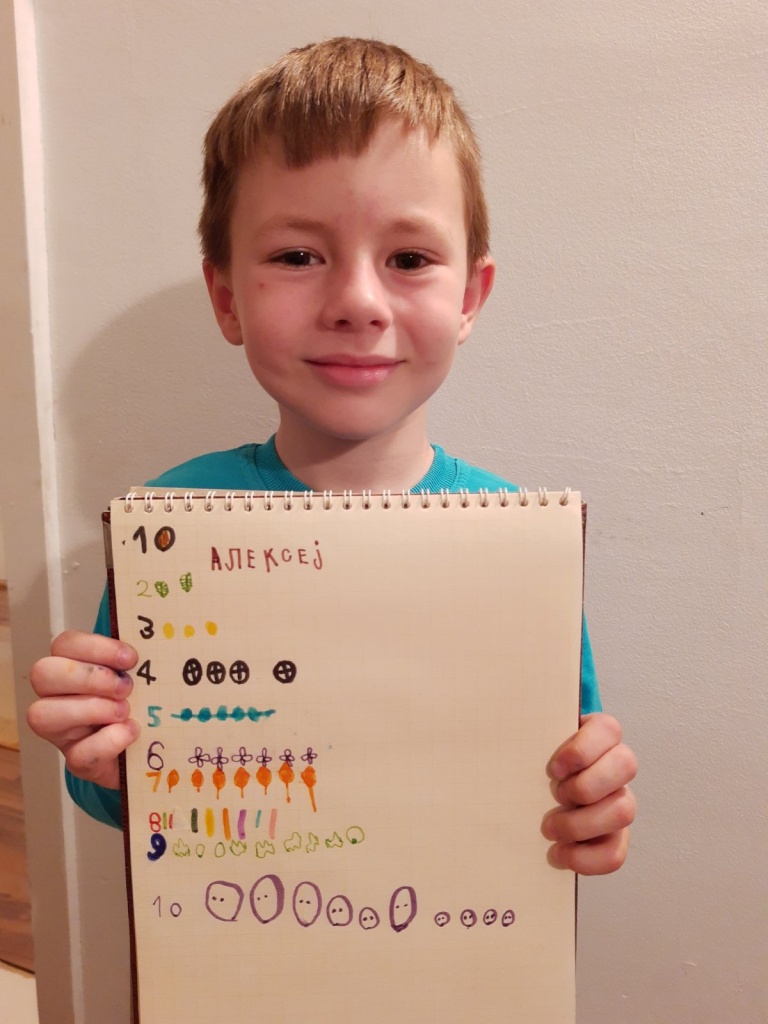 1
АЛЕКСЕЈ
2
3
4
5
6
7
8
9
10